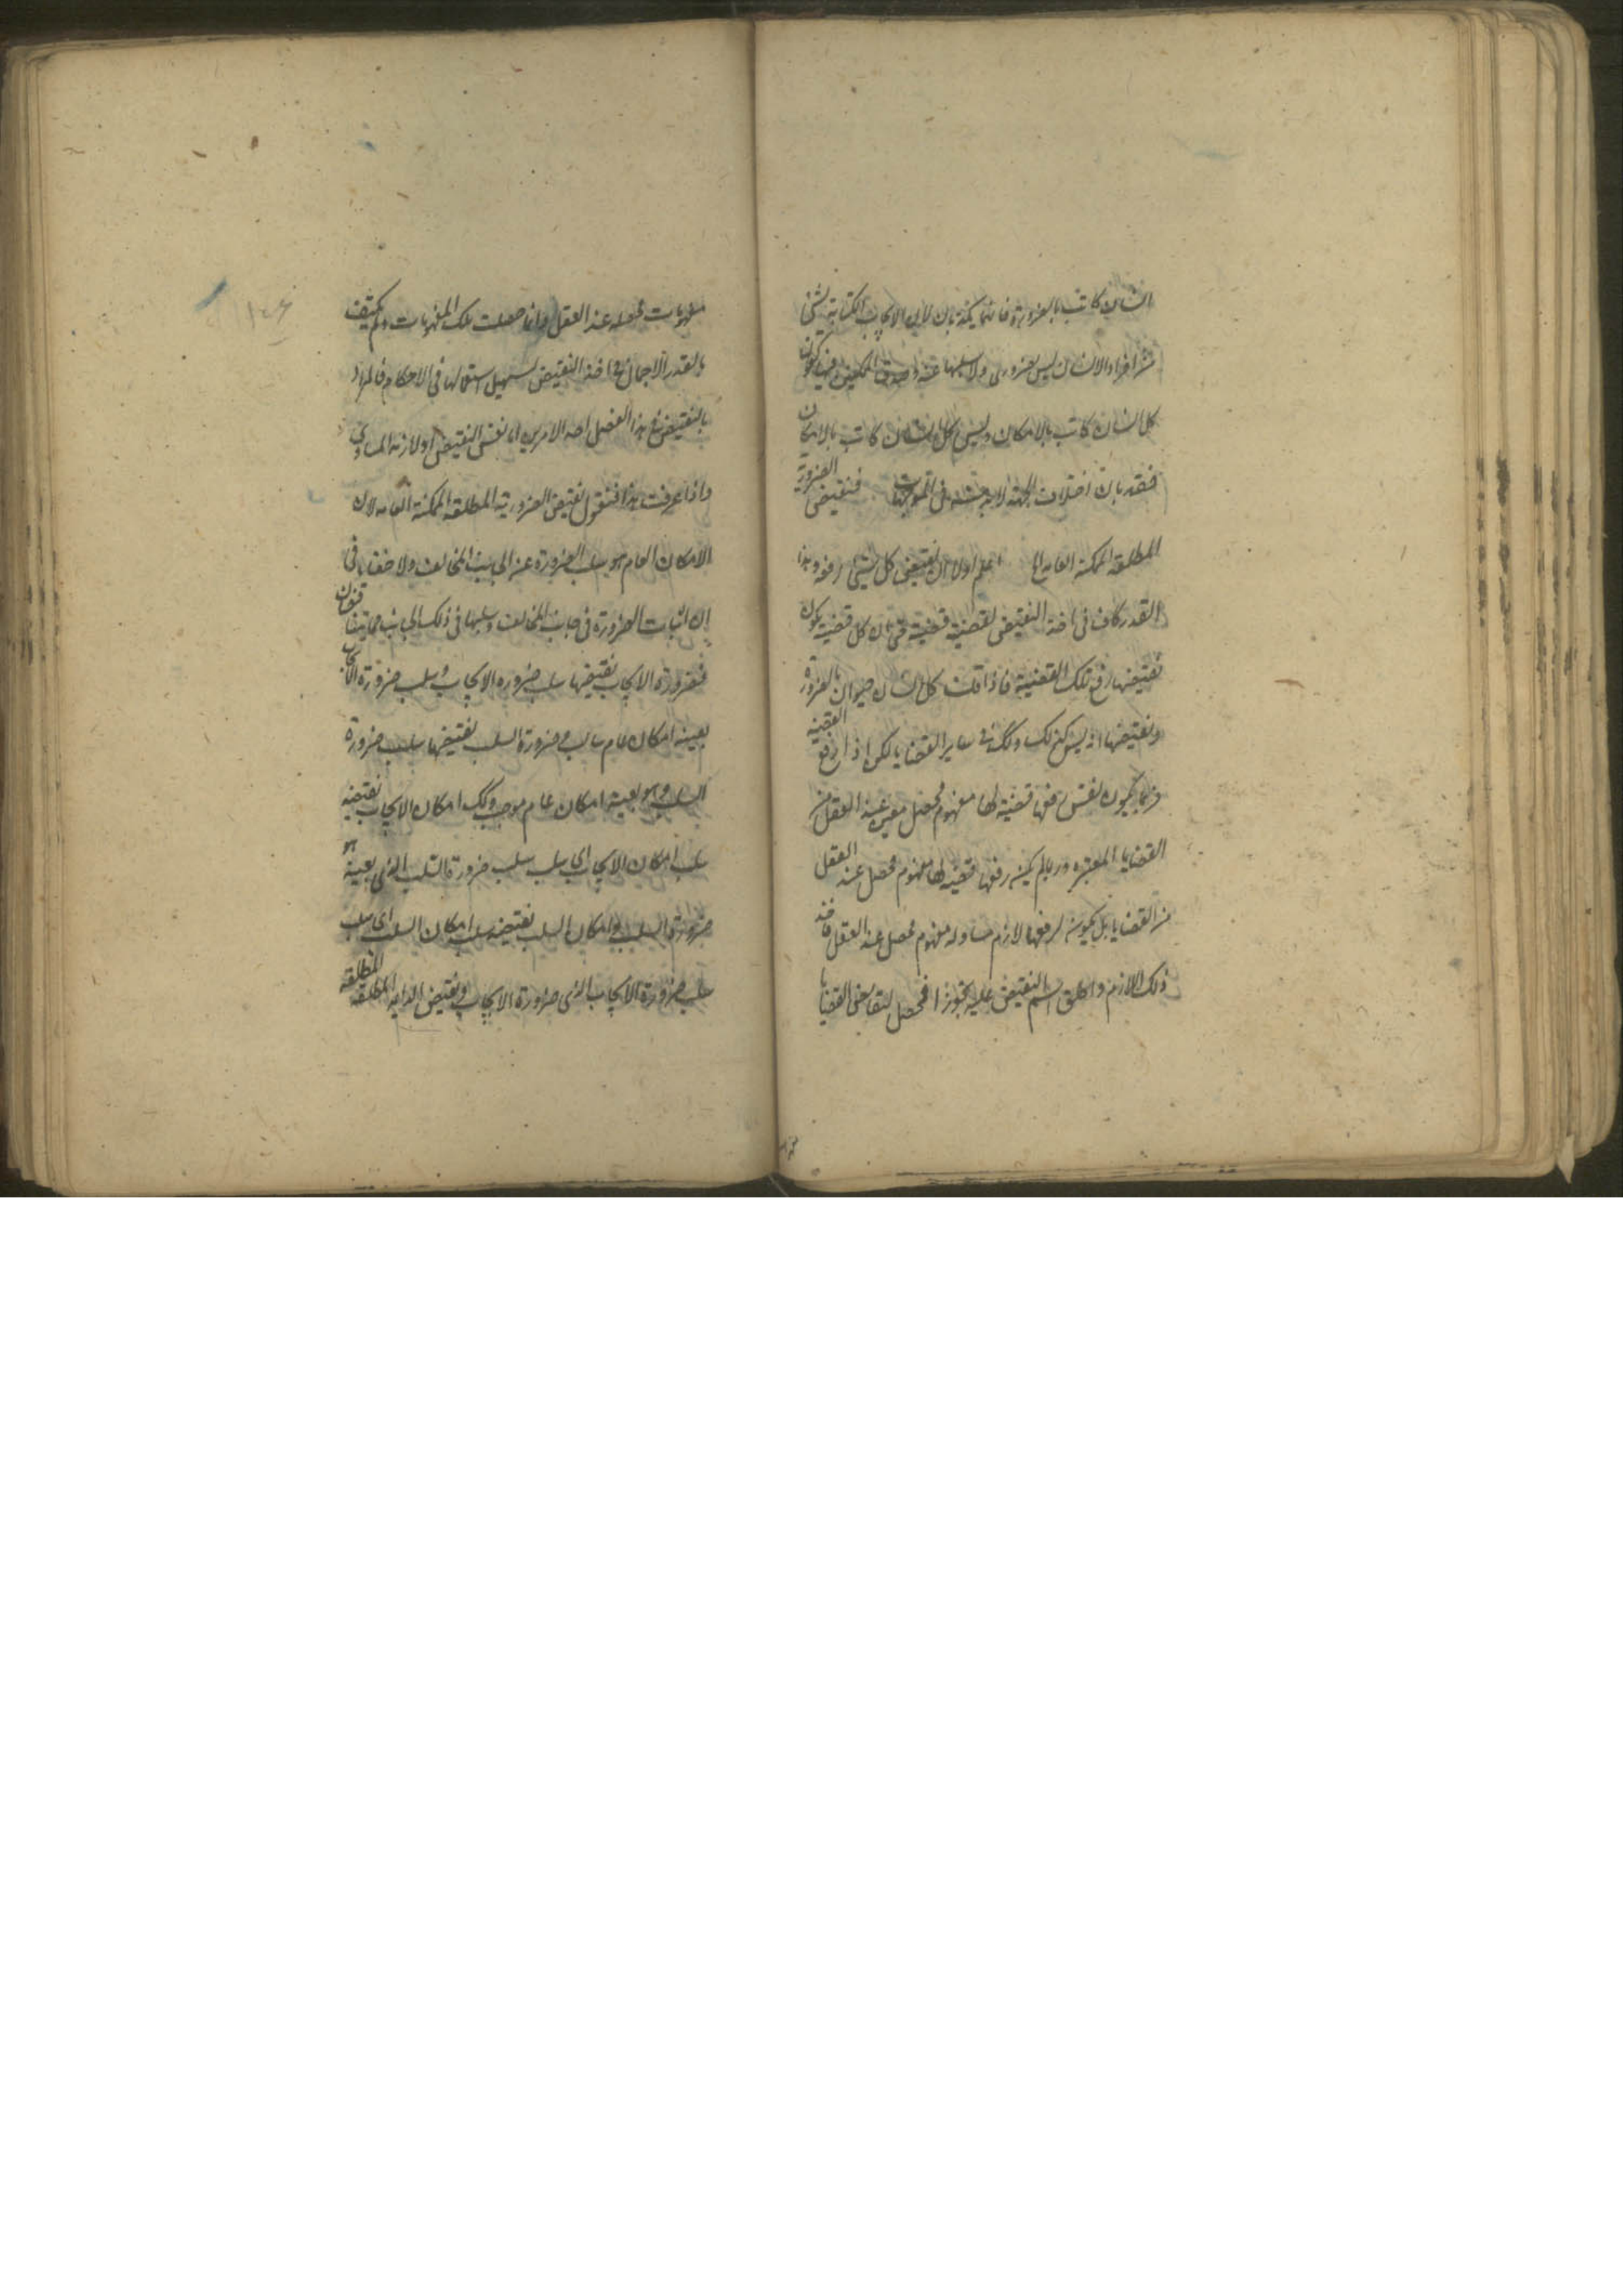 انسان كاتب بالضرورة فانهما يكذبان لان الايجاب الكتابة لشئ
من افراد الانسان ليس بضرورى ولا سلبها عنه وصدق الممكنتين فيها كقولنا
كل انسان كاتب بالامكان وليس كل انسان كاتب بالامكان
فقد بان اختلاف الجهة لا بد منه فى الموجهات فنقيض الضرورية
المطلقة الممكنة العامة الخ اعلم اولا ان نقيض كل شئ رفعه وهذا
القدر كاف فى اخذ النقيض لقضية قضية حتى ان كل قضية يكون
نقيضها رفع تلك القضية فاذا قلت كل انسان حيوان بالضرورة
فنقيضها انه ليس كذلك وكذلك فى ساير القضايا لكن اذا رفع القضية
فربما يكون نفس رفعها قضية لها مفهوم محصل معين عند العقل من
القضايا المعتبرة وربما لم يكن رفعها قضية لها مفهوم محصل عند العقل
من القضايا بل يكون لرفعها لازم مساو له مفهوم محصل عند العقل فاخذ
ذلك اللازم واطلق اسم النقيض عليه تجوزا فحصل لنقايض القضايا
مفهومات
مفهومات محصلة عند العقل وانما حصلت تلك المفهومات ولم يكتف
بالقدر الاجمالى فى اخذ النقيض لسهيل استعمالها فى الاحكام فالمراد
بالنقيض فى هذا الفصل احد الامرين اما نفس النقيض او لازمه المساوى
واذا عرفت هذا فنقول نقيض الضرورية المطلقة الممكنة العامة لان
الامكان العام هو سلب الضرورة عن الجانب المخالف ولا خفاء فى
ان اثبات الضرورة فى جانب المخالف وسلبها فى ذلك الجانب مما يتناقضان
فضرورة الايجاب نقيضها سلب ضرورة الايجاب وسلب ضرورة الايجاب
بعينه امكان عام سالب وضرورة السلب نقيضها سلب ضرورة
السلب وهو بعينه امكان عام موجب وكذلك امكان الايجاب نقيضه
سلب امكان الايجاب اى سلب سلب ضرورة السلب الذى بعينه هو
ضرورة السلب وامكان السلب نقيضه سلب امكان السلب اى سلب
سلب ضرورة الايجاب الذى ضرورة الايجاب ونقيض الدايمة المطلقة المطلقة